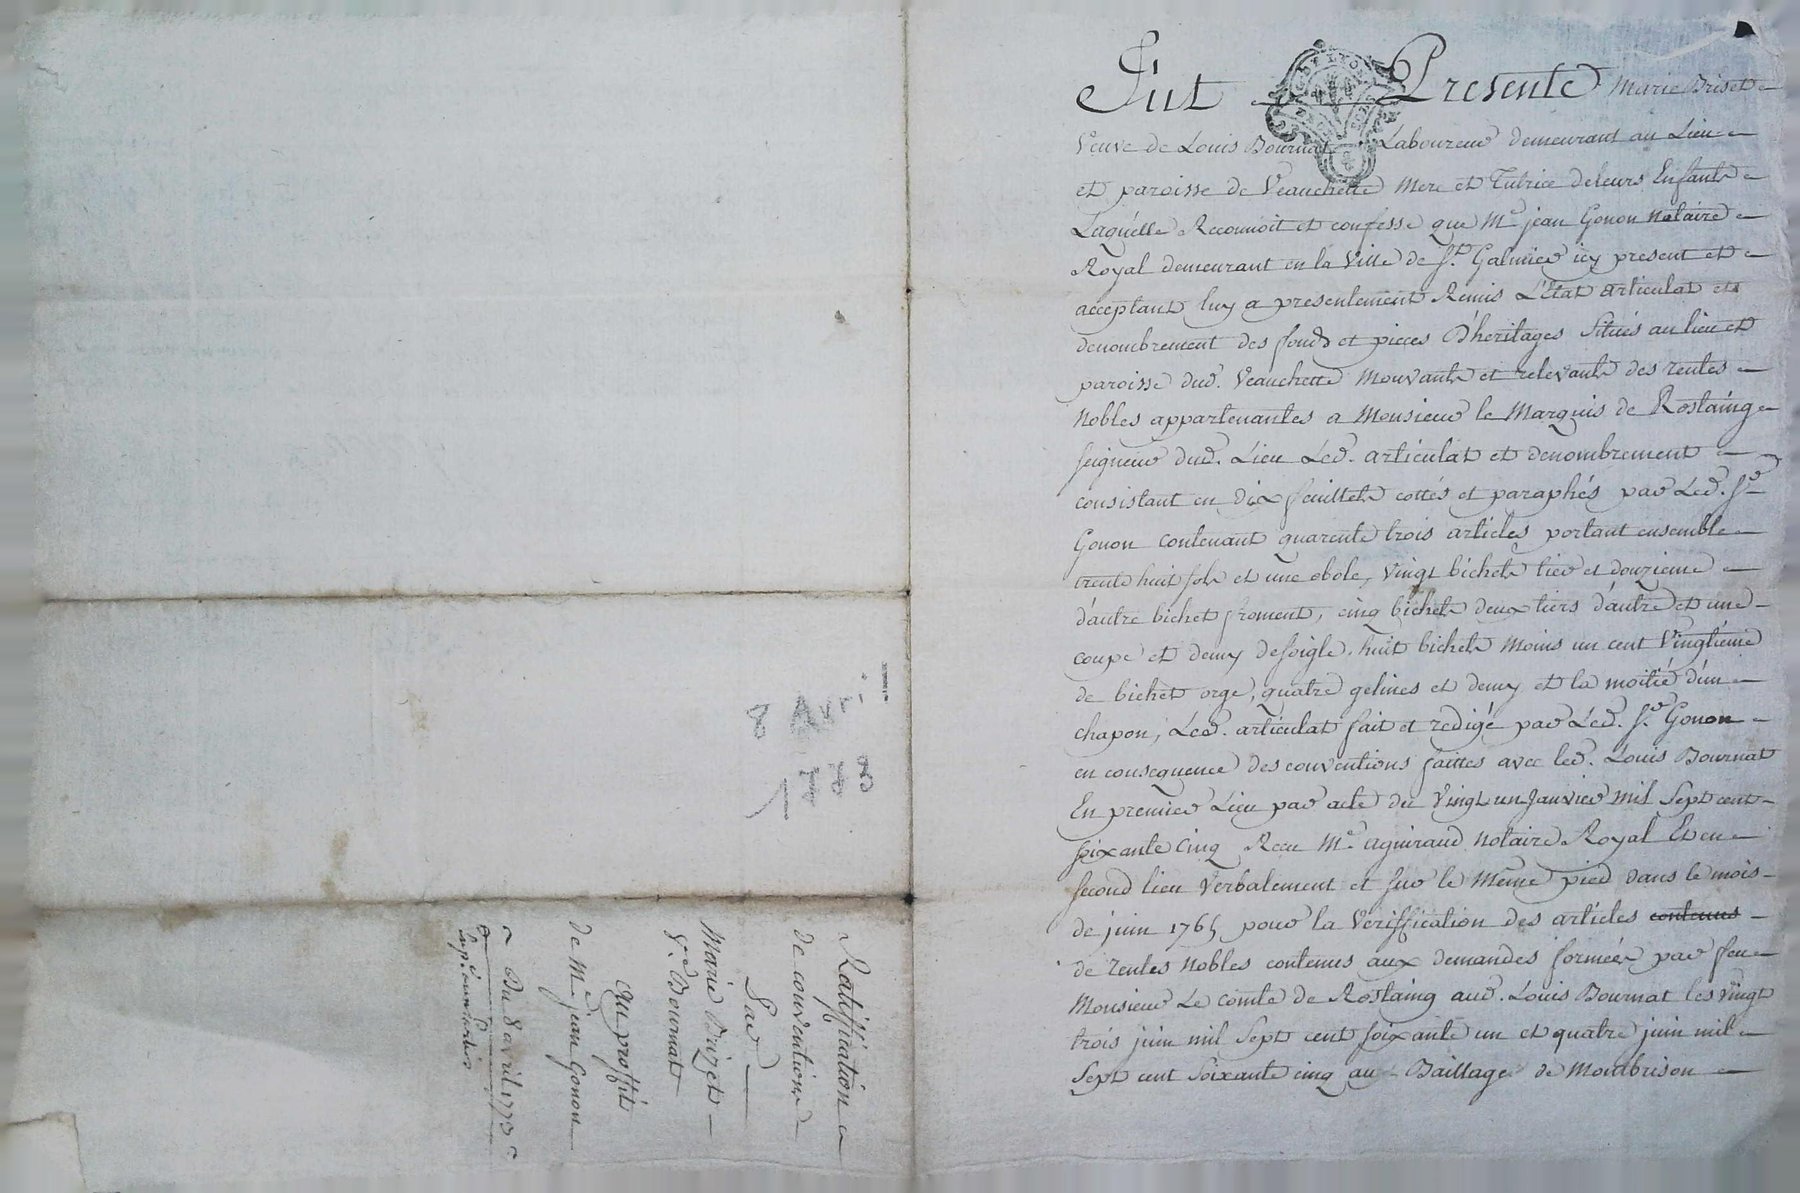 8 Avri
1773
Ratiffication
de conventions
Par
Marie Brizet
Ve Bournat
Au proffit
de Me jean Gonon
Du 8 avril 1773
Fut Presente Marie Briset
Veuve de Louis Bournat Laboureur demeurant au Lieu
et paroisse de Veauchette Mere et Tutrice de leurs Enfants
Laquelle Reconnoit et confesse que Me jean Gonon Notaire
Royal demeurant en la Ville de St. Galmier icy present et
acceptant luy a presentement Remis L'Etat articulat et
denombrement des fonds et pieces D'heritages Situés au lieu et
paroisse dud. Veauchette Mouvants et relevants des rentes
Nobles appartenantes a Monsieur le Marquis de Rostaing
seigneur dud. Lieu Led. articulat et denombrement
consistant en dix feuillets cottés et paraphés par Led. Sr
Gonon contenant quarente trois articles portant ensemble
trente huit sols et une obole, vingt bichets tier et douzieme
d'autre bichet froment, cinq bichets deux tiers d'autre et une
coupe et demy de soigle, huit bichets moins un cent vingtieme
de bichet orge, quatre gelines et demy et la moitié d'un
chapon, Led. articulat fait et redigé par Led. Sr. Gonon
en consequence des conventions faittes avec led. Louis Bournat
En premier Lieu par acte du vingt un Janvier mil Sept cent
soixante cinq Recu Me Aguiraud Notaire Royal Et en
second lieu verbalement et sur le Même pied dans le mois
de juin 1765 pour la veriffication des articles contenus
de rentes Nobles contenus aux demandes formées par feu
Monsieur Le comte de Rostaing aud. Louis Bournat les vingt
trois juin mil Sept cent soixante un et quatre juin mil
Sept cent Soixante cinq au Baillage de Montbrison